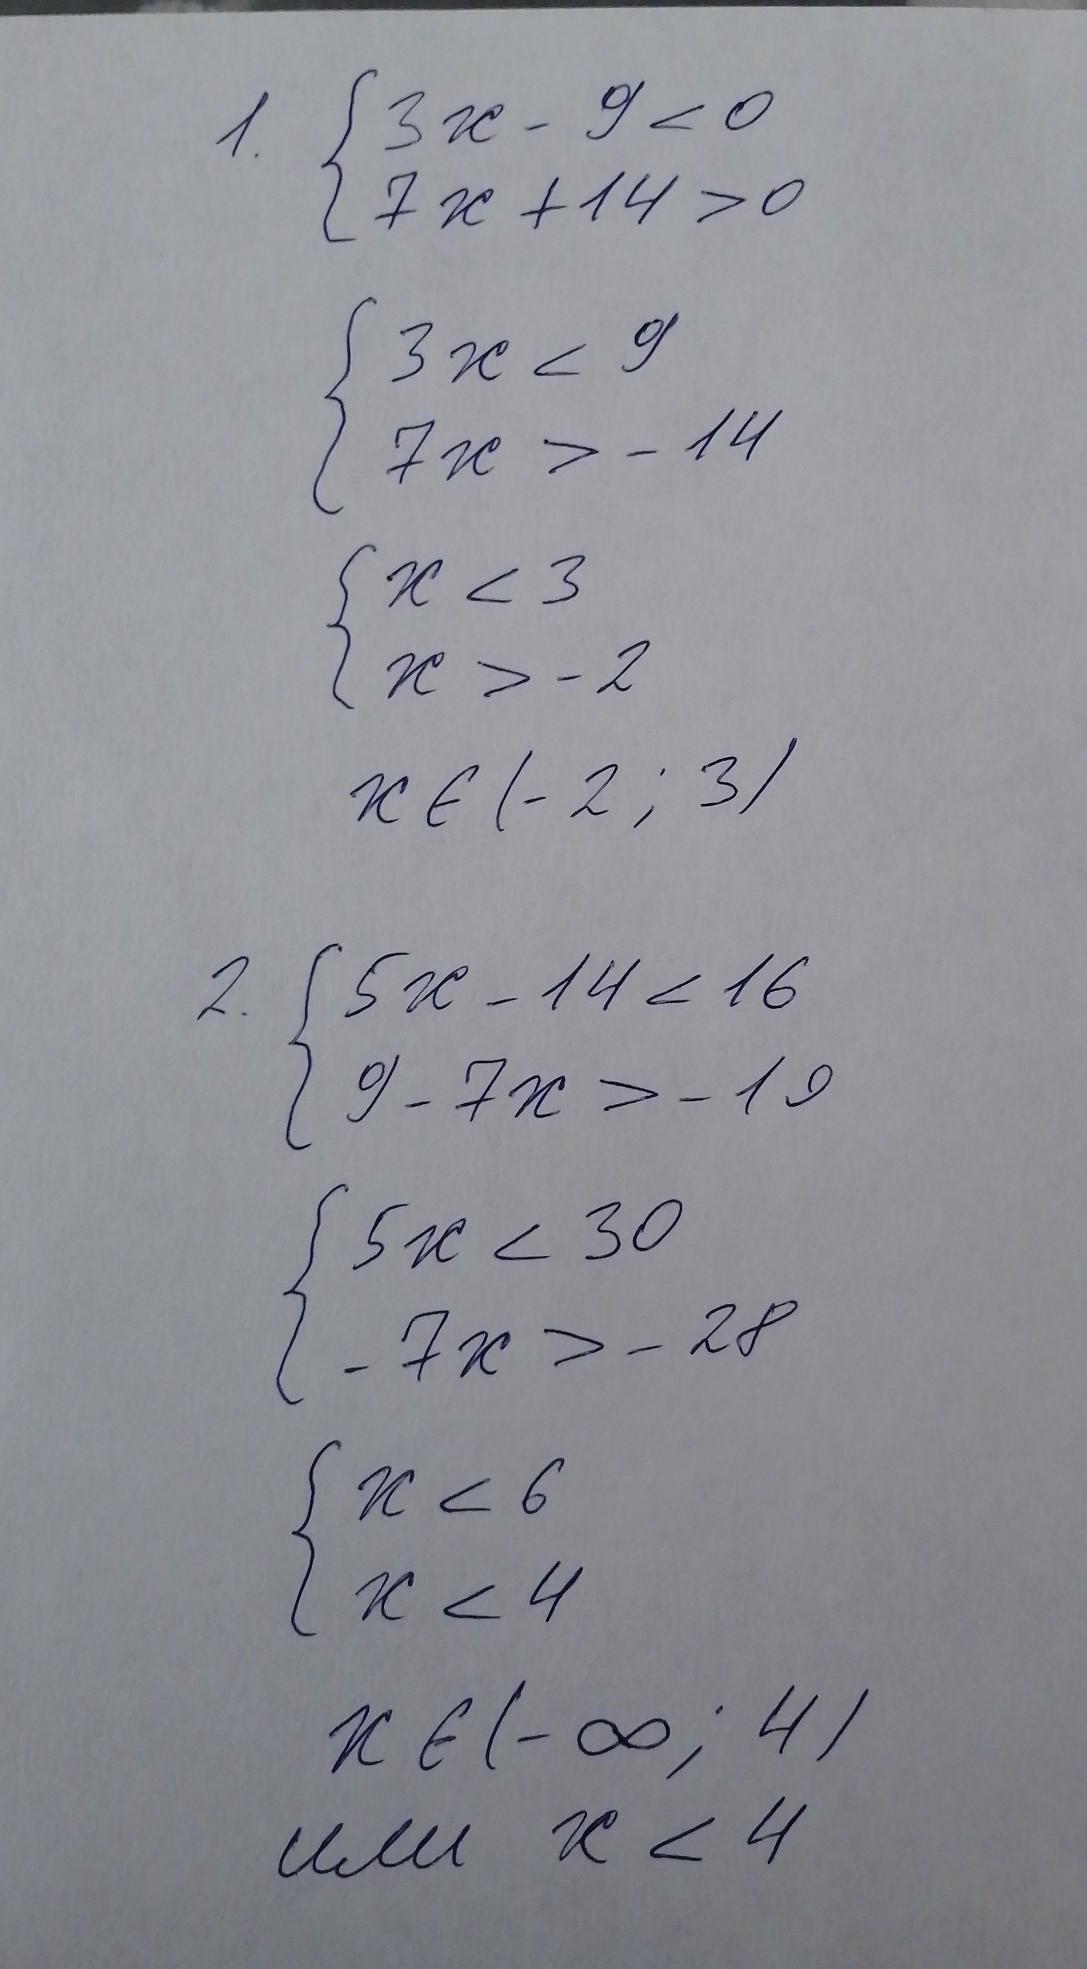 1. { 3x - 9 < 0
7x + 14 > 0
{ 3x < 9
7x > - 14
{ x < 3
x > - 2
x ∈ (- 2 ; 3)
2. { 5x - 14 < 16
9 - 7x > - 19
{ 5x < 30
- 7x > - 28
{ x < 6
x < 4
x ∈ (- ∞ ; 4)
или x < 4